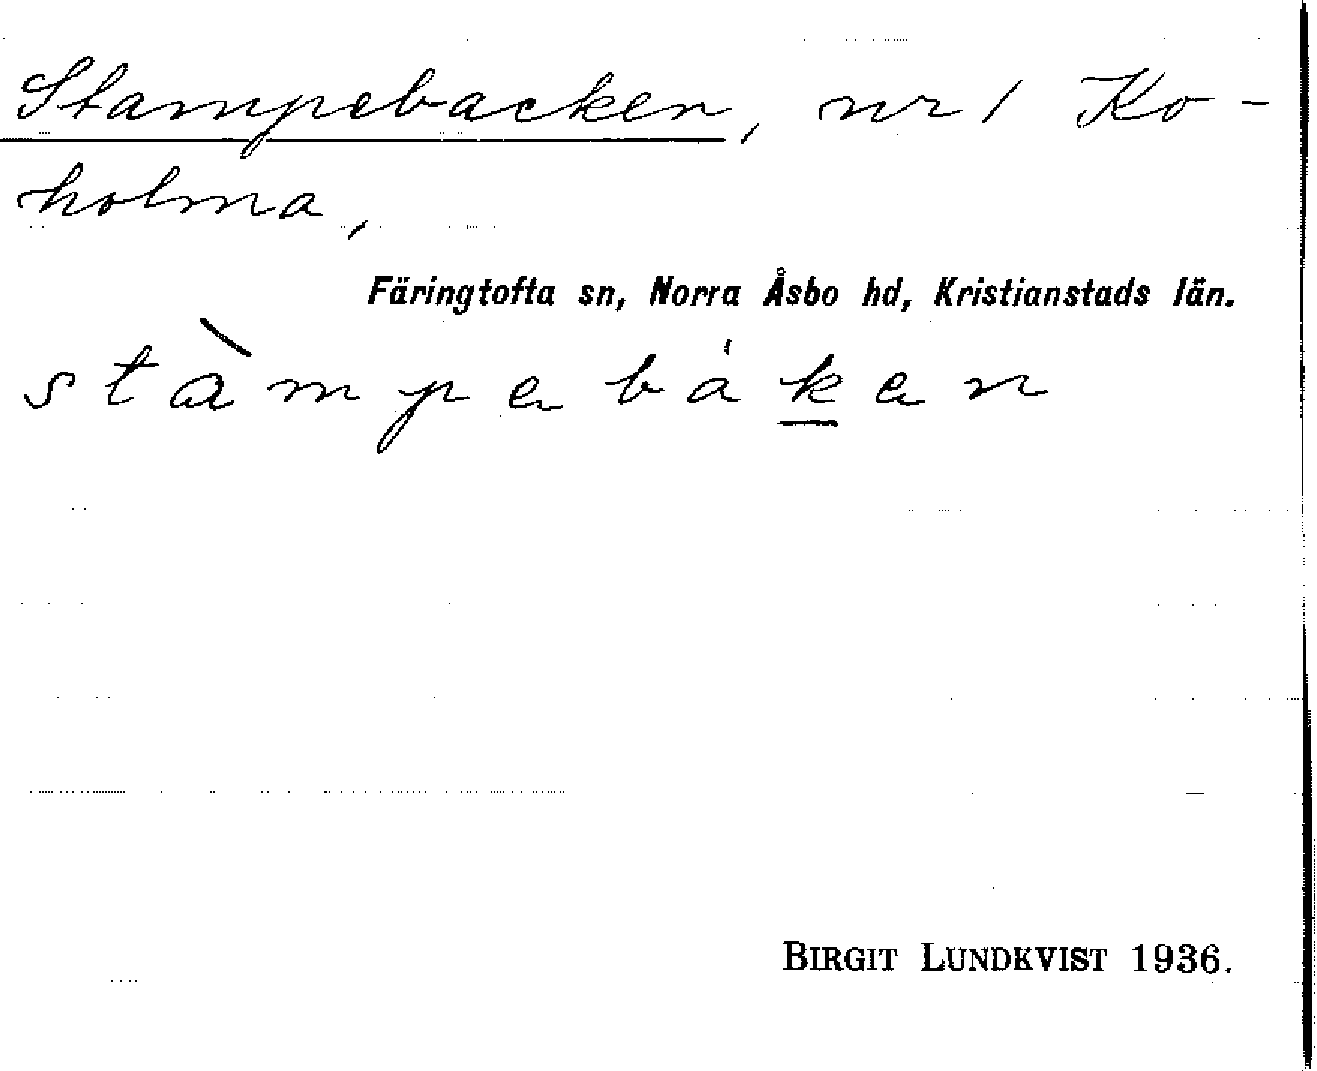 Stampebacken, nr 1 Ko-
holma,
Färingtofta sn, Norra Åsbo hd, Kristianstads län.
stàmpebáken
BIRGIT LUNDKVIST 1936.